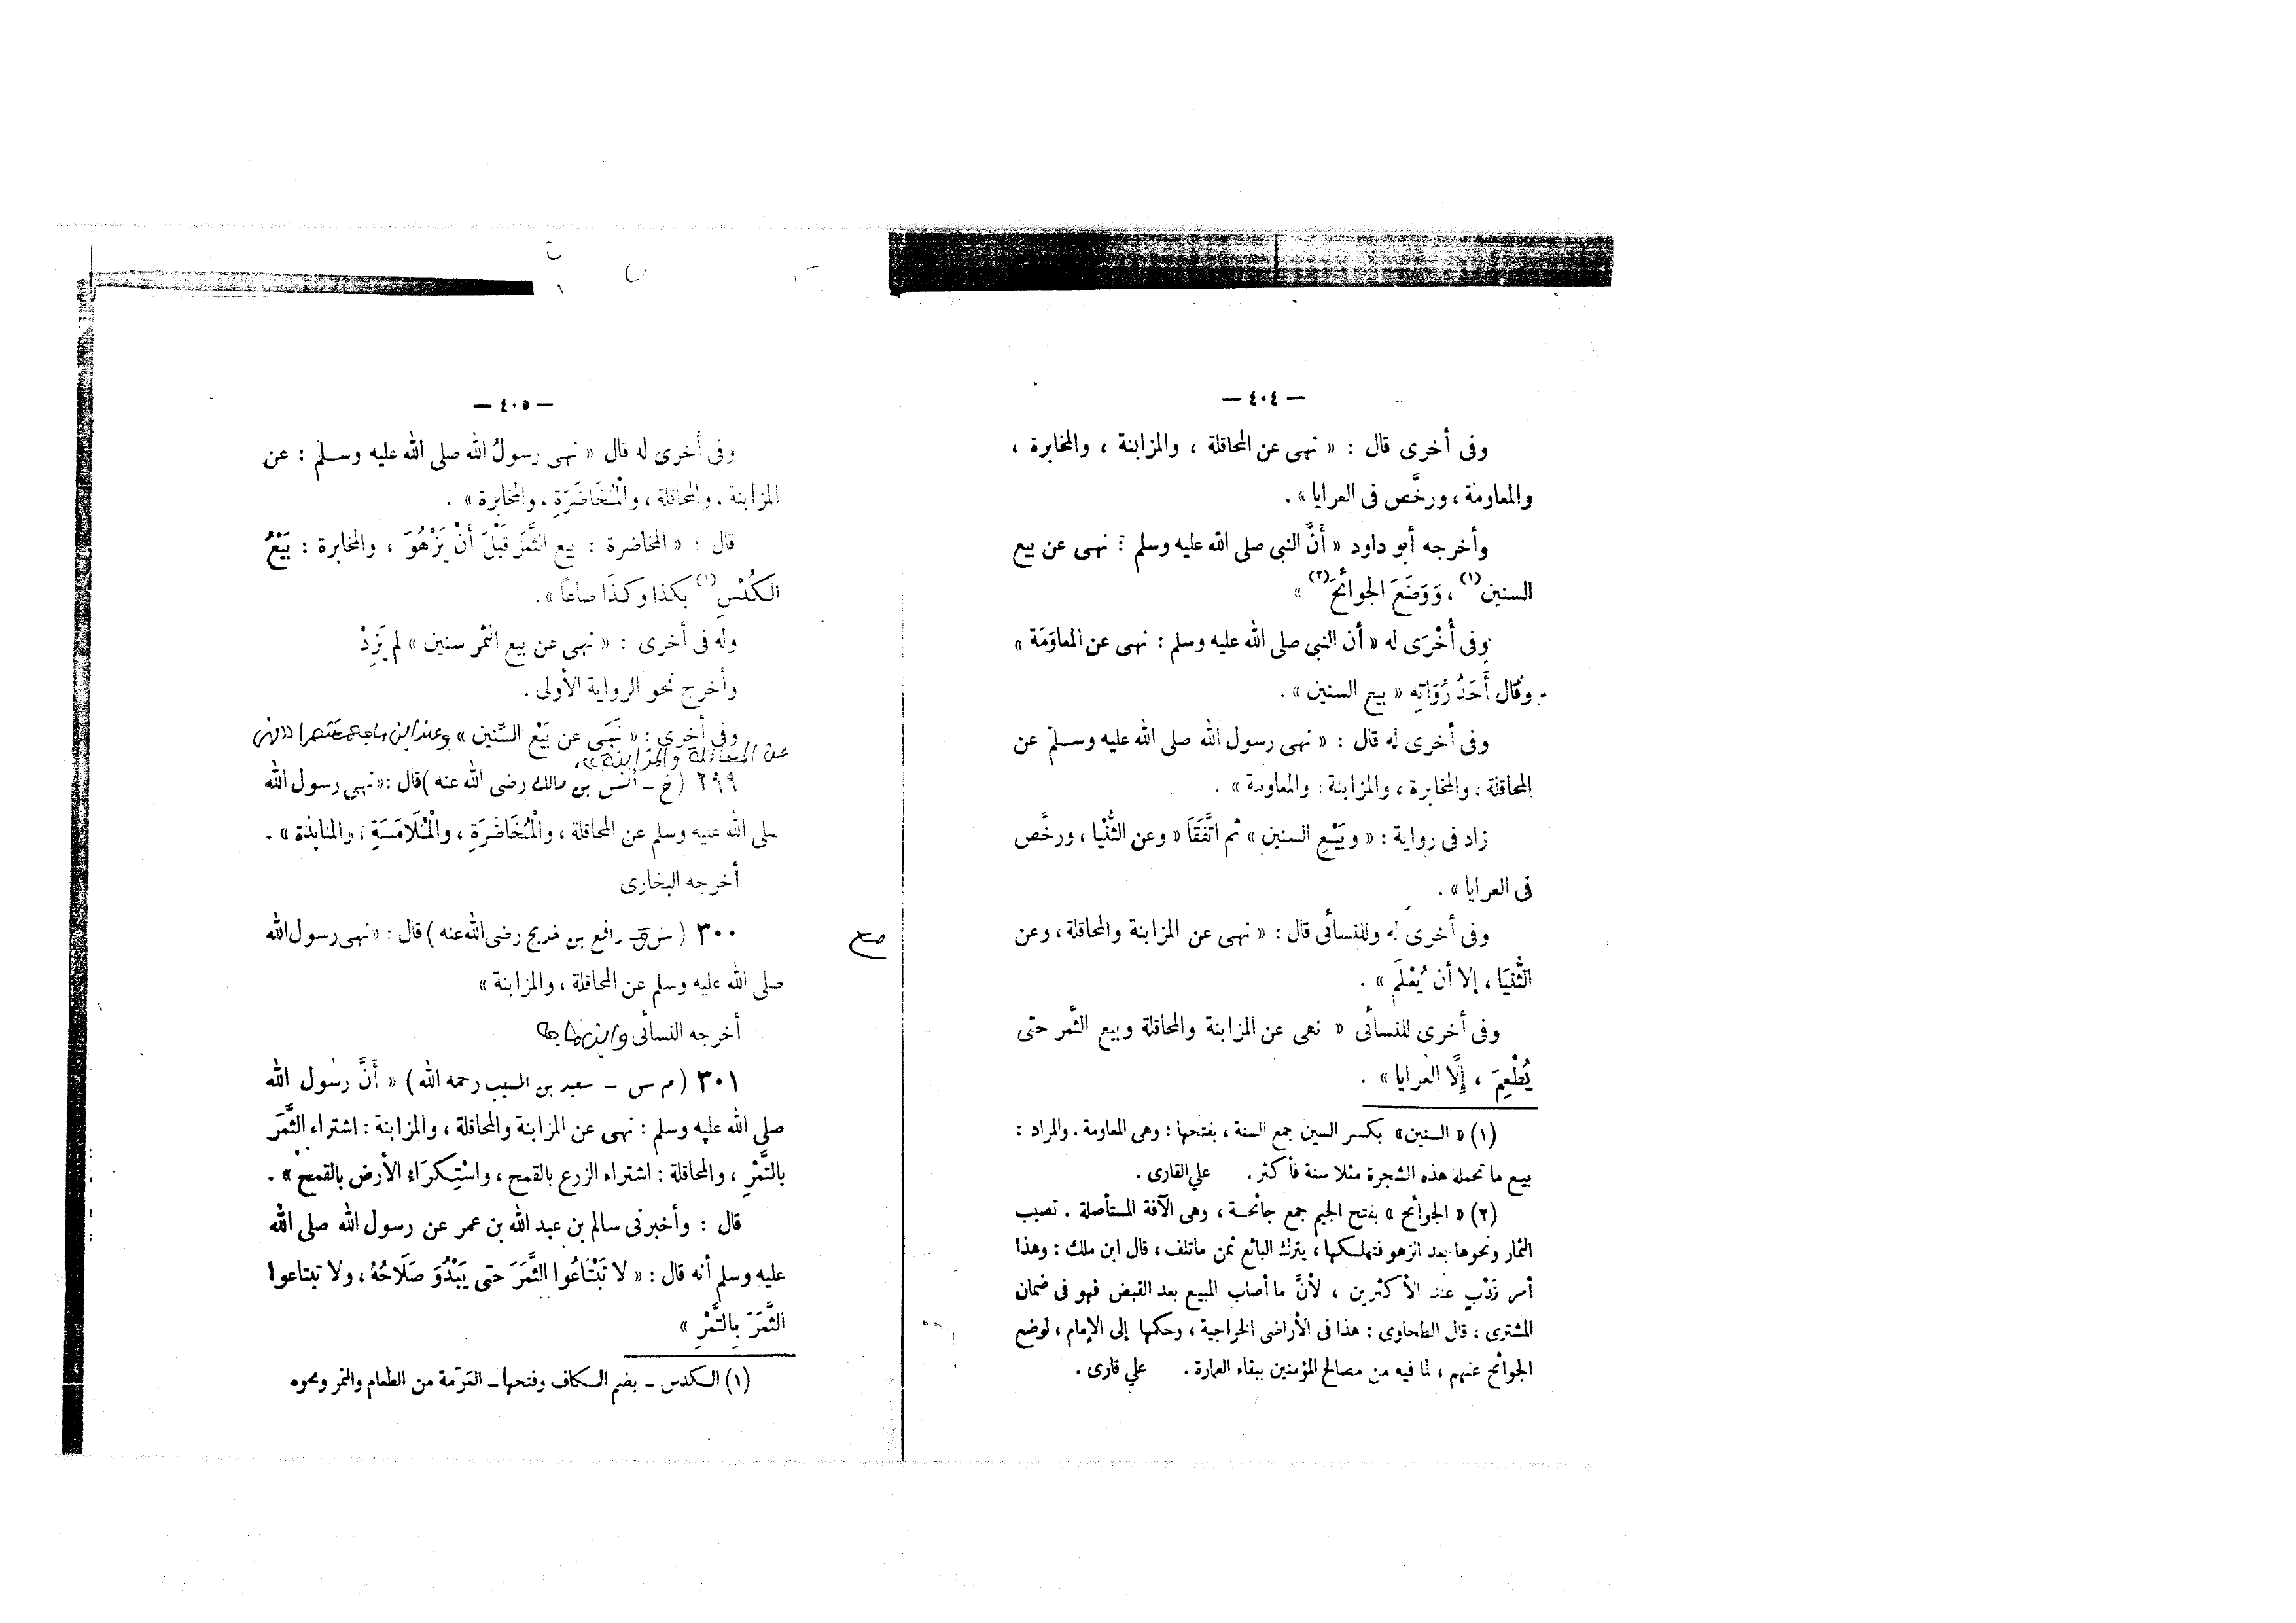 — ٤٠٤ —
وفى أخرى قال : « نهى عن المحاقلة ، والمزابنة ، والمخابرة ،
والمعاومة ، ورخَّص فى العرايا » .
وأخرجه أبو داود « أَنَّ النبى صلى الله عليه وسلم : نهى عن بيع
السنين(١) ، وَوَضَعَ الجوائحَ(٢) »
وفى أُخْرَى له « أن النبى صلى الله عليه وسلم : نهى عن المعاوَمَة »
وقال أَحَدُ رُوَاتِهِ « بيع السنين » .
وفى أخرى له قال : « نهى رسول الله صلى الله عليه وسلم عن
المحاقلة ، والمخابرة ، والمزابنة ، والمعاومة » .
زاد فى رواية : « وبَيْعِ السنين » ثم اتَّفَقَا « وعن الثُّنْيا ، ورخَّص
فى العرايا » .
وفى أخرى له وللنسائى قال : « نهى عن المزابنة والمحاقلة ، وعن
الثُّنيَا ، إلا أن يُعْلَمَ » .
وفى أخرى للنسائى « نهى عن المزابنة والمحاقلة وبيع الثَّمر حتى
يُطْعِمَ ، إِلَّا العرايا » .
(١) « السنين » بكسر السين جمع السنة ، بفتحها : وهى المعاومة . والمراد :
بيع ما تحمله هذه الشجرة مثلا سنة فأكثر . علي القارى .
(٢) « الجوائح » بفتح الجيم جمع جائحة ، وهى الآفة المستأصلة . تصيب
الثمار ونحوها بعد الزهو فتهلكها ، يترك البائع ثمن ماتلف ، قال ابن ملك : وهذا
أمر نَدْبٍ عند الأكثرين ، لأنَّ ما أصاب المبيع بعد القبض فهو فى ضمان
المشترى : قال الطحاوى : هذا فى الأراضى الخراجية ، وحكمها إلى الإمام ، لوضع
الجوائح عنهم ، لما فيه من مصالح المؤمنين ببقاء العمارة . علي قارى .
— ٤٠٥ —
وفى أخرى له قال « نهى رسولُ الله صلى الله عليه وسلم : عن
المزابنة . والمحاقلة ، والْمُخَاضَرَةِ . والمخابرة » .
قال : « المخاضرة : بيع الثَّمَرَ قَبْلَ أَنْ يَزْهُوَ ، والمخابرة : بَيْعُ
الكُدْسِ(١) بكذا وكذَا صاعًا » .
وله فى أخرى : « نهى عن بيع الثمر سنين » لم يَزِدْ
وأخرج نحو الرواية الأولى .
وفى أخرى : « نَهَى عن بَيْع السِّنين » وعند ابن ماجه مختصرا « نهى
عن المحاقلة والمزابنة » .
٢٩٩ ( خ – أنس بن مالك رضى الله عنه ) قال : « نهى رسول الله
صلى الله عليه وسلم عن المحاقلة ، والْمُخَاضَرَةِ ، والْمُلَامَسَةِ ، والمنابذة » .
أخرجه البخارى
٣٠٠ ( س رافع بن خديج رضى الله عنه ) قال : « نهى رسول الله
صلى الله عليه وسلم عن المحاقلة ، والمزابنة »
أخرجه النسائى وابن ماجه
٣٠١ ( م س – سعيد بن المسيب رحمه الله ) « أَنَّ رسول الله
صلى الله عليه وسلم : نهى عن المزابنة والمحاقلة ، والمزابنة : اشتراء الثَّمَرَ
بالتَّمْرِ ، والمحاقلة : اشتراء الزرع بالقمح ، واسْتِكرَاء الأرض بالقمح » .
قال : وأخبرنى سالم بن عبد الله بن عمر عن رسول الله صلى الله
عليه وسلم أنه قال : « لا تَبْتَاعُوا الثَّمَرَ حتى يَبْدُوَ صَلَاحُهُ ، ولا تبتاعوا
الثَّمَرَ بِالتَّمْرِ »
(١) الكدس – بضم الكاف وفتحها – العَرَمة من الطعام والتمر ونحوه